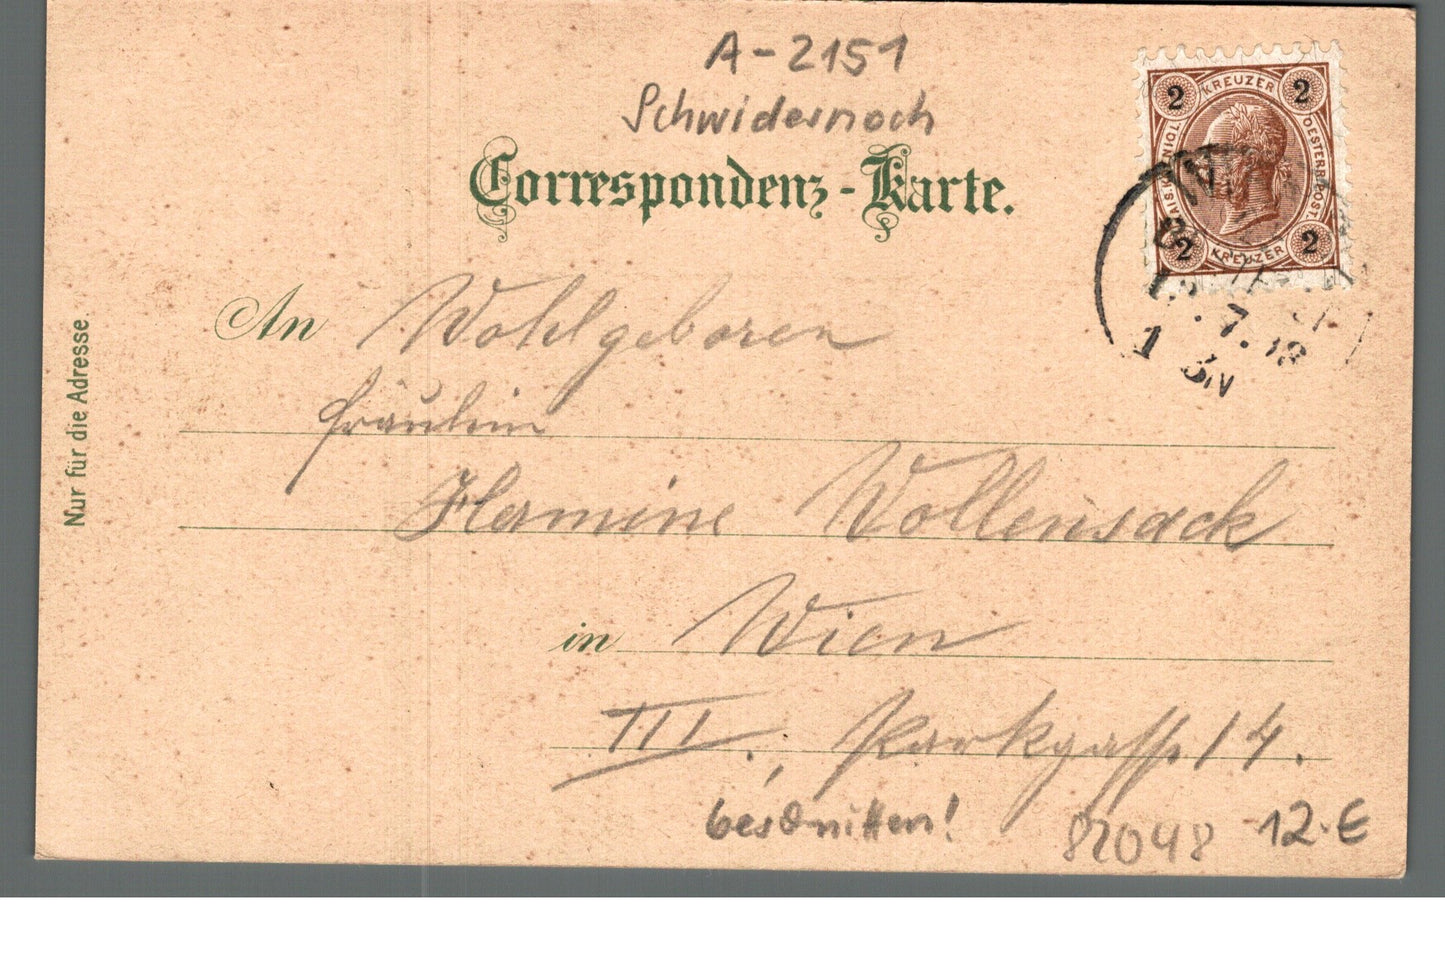 A-2151
Schwidernoch
Correspondenz-Karte.
2 KREUZER 2
KAIS. KÖNIGL. OESTERR. POST.
2 KREUZER 2
WIEN
7. 98
1 3N
Nur für die Adresse.
An Wohlgeboren
Fräulein
Hermine Wollensack
in Wien
III., Parkgasse 14.
beschnitten!
82048 12.€